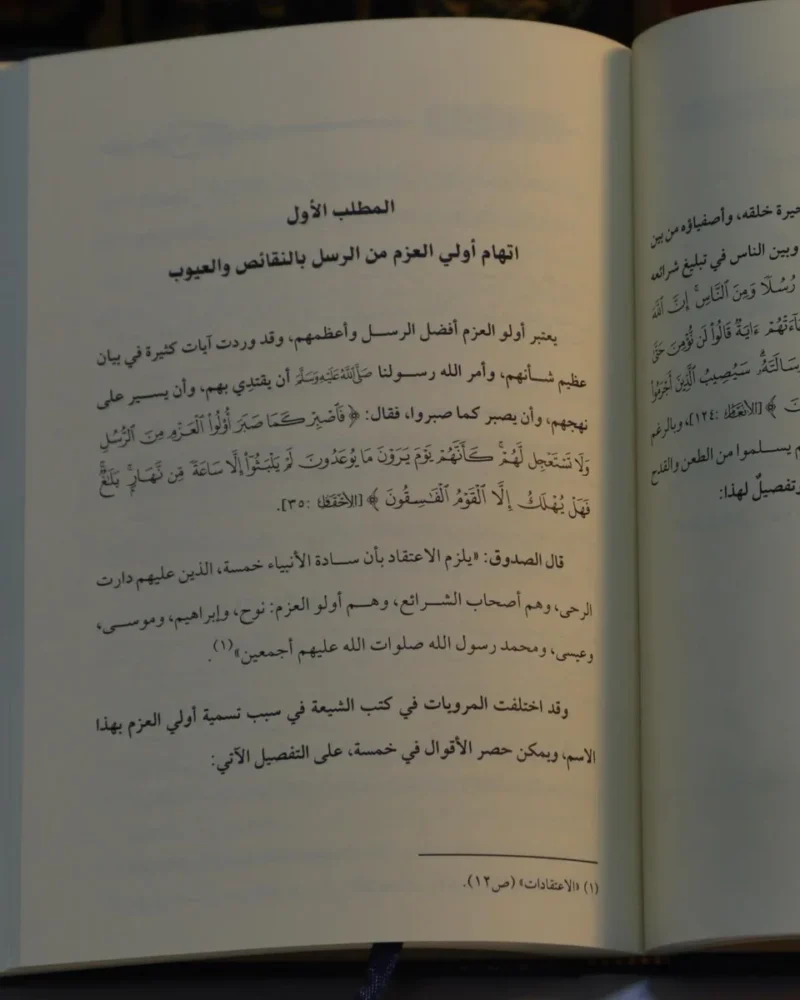 حيرة خلقه، وأصفياؤه من بين
وبين الناس في تبليغ شرائعه
رُسُلًا وَمِنَ النَّاسِ ۚ إِنَّ اللَّهَ
ءَايَةٌ قَالُوا لَن نُّؤْمِنَ حَتَّىٰ
سَيُصِيبُ الَّذِينَ أَجْرَمُوا
﴾ [الأنعام: ١٢٤]، وبالرغم
يسلموا من الطعن والقدح
وتفصيلٌ لهذا:
المطلب الأول
اتهام أولي العزم من الرسل بالنقائص والعيوب
يعتبر أولو العزم أفضل الرسل وأعظمهم، وقد وردت آيات كثيرة في بيان
عظيم شأنهم، وأمر الله رسولنا صَلَّى اللَّهُ عَلَيْهِ وَسَلَّمَ أن يقتدِي بهم، وأن يسير على
نهجهم، وأن يصبر كما صبروا، فقال: ﴿فَاصْبِرْ كَمَا صَبَرَ أُوْلُوا الْعَزْمِ مِنَ الرُّسُلِ
وَلَا تَسْتَعْجِل لَّهُمْ ۚ كَأَنَّهُمْ يَوْمَ يَرَوْنَ مَا يُوعَدُونَ لَمْ يَلْبَثُوا إِلَّا سَاعَةً مِّن نَّهَارٍ ۚ بَلَاغٌ ۚ
فَهَلْ يُهْلَكُ إِلَّا الْقَوْمُ الْفَاسِقُونَ﴾ [الأحقاف: ٣٥].
قال الصدوق: «يلزم الاعتقاد بأن سادة الأنبياء خمسة، الذين عليهم دارت
الرحى، وهم أصحاب الشرائع، وهم أولو العزم: نوح، وإبراهيم، وموسى،
وعيسى، ومحمد رسول الله صلوات الله عليهم أجمعين»(١).
وقد اختلفت المرويات في كتب الشيعة في سبب تسمية أولي العزم بهذا
الاسم، ويمكن حصر الأقوال في خمسة، على التفصيل الآتي:
(١) «الاعتقادات» (ص١٢).